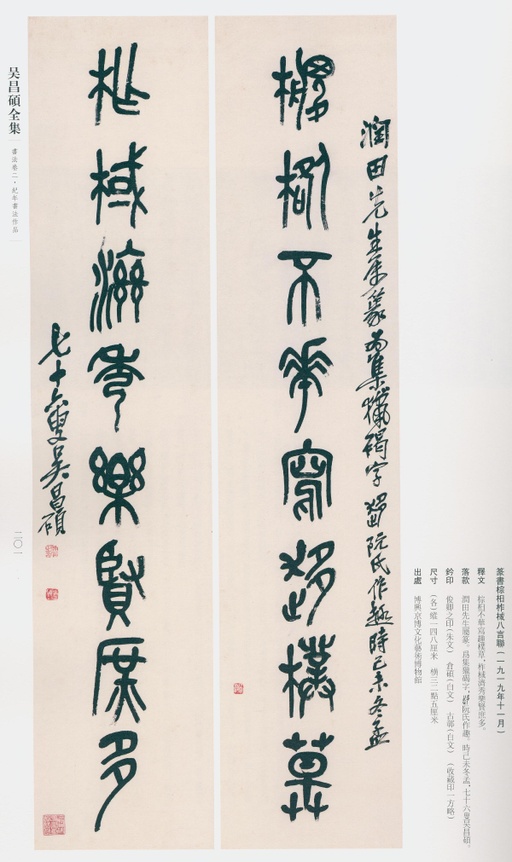 吴昌碩全集
書法卷二·紀年書法作品
二〇一
篆書棕栢柞棫八言聯(一九一九年十一月)
釋文 棕栢不華寫 樸 ,柞棫濟秀樂賢 多。
落款 潤田先生屬篆,爲集獵碣字, 阮氏作趣。時己未冬孟,七十六叟吴昌碩。
鈐印 俊卿之印(朱文) 倉碩(白文) 古鄣(白文) (收藏印一方略)
尺寸 (各)縱一四八厘米 橫三二點五厘米
出處 博興京博文化藝術博物館
潤田先生屬篆爲集獵碣字 阮氏作趣時己未冬孟
棕栢不華寫 樸
柞棫濟秀樂賢 多
七十六叟吴昌碩